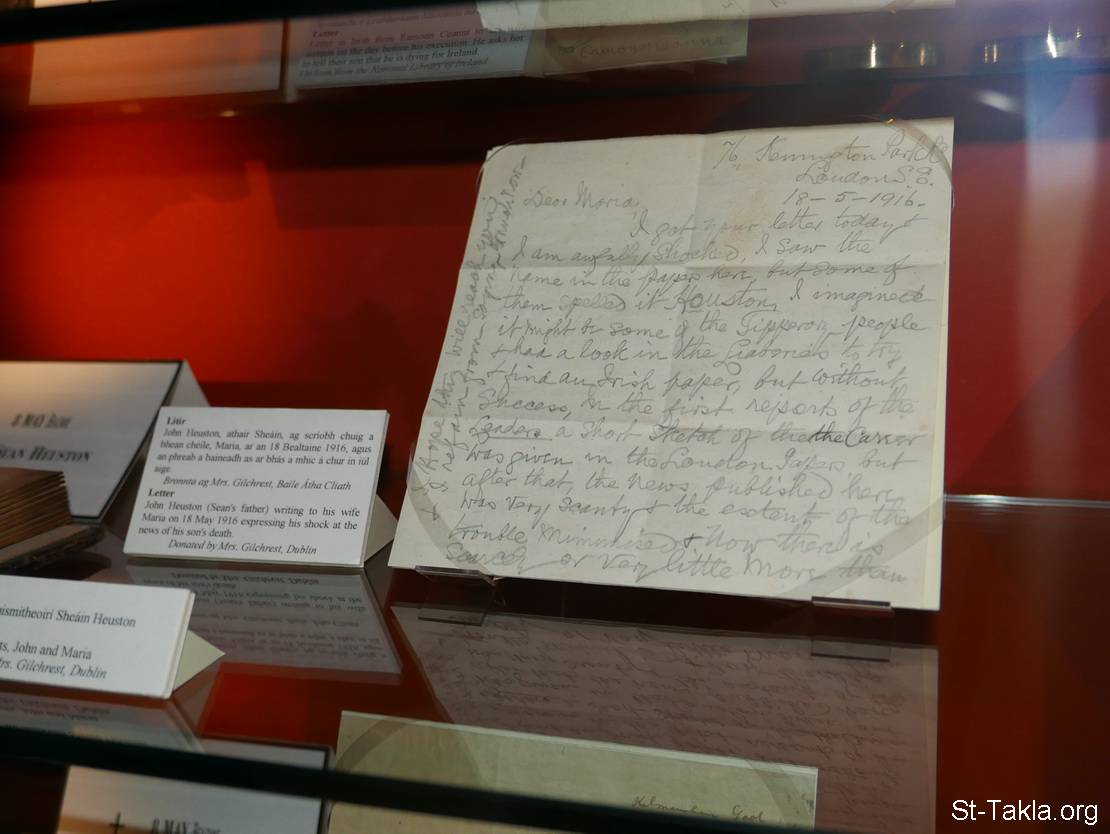 Letter
Letter in Irish from Eamonn Ceannt to
on the day before his execution. He asks her
to tell their son that he is dying for Ireland.
On loan from the National Library of Ireland
76, Kennington Park Rd
London S.E.
18-5-1916.
Dear Maria,
I got your letter today &
I am awfully shocked, I saw the
name in the papers here, but some of
them spelled it Houston, I imagined
it might be some of the Tipperary people
& had a look in the Libraries to try
& find an Irish paper, but without
success, in the first reports of the
Leaders a short sketch of the Career
was given in the London Papers but
after that, the news published here
was very scanty & the extent of the
trouble minimised & now there is
scarcely or very little more than
I hope this will reach you
& refrain from
R MAY
SEAN HEUSTON
Litir
John Heuston, athair Sheáin, ag scríobh chuig a
bhean chéile, Maria, ar an 18 Bealtaine 1916, agus
an phreab a baineadh as ar bhás a mhic á chur in iúl
aige.
Bronnta ag Mrs. Gilchrest, Baile Átha Cliath
Letter
John Heuston (Sean's father) writing to his wife
Maria on 18 May 1916 expressing his shock at the
news of his son's death.
Donated by Mrs. Gilchrest, Dublin
Sheáin Heuston
ts, John and Maria
rs. Gilchrest, Dublin
Kilmainham Gaol
8 MAY
St-Takla.org